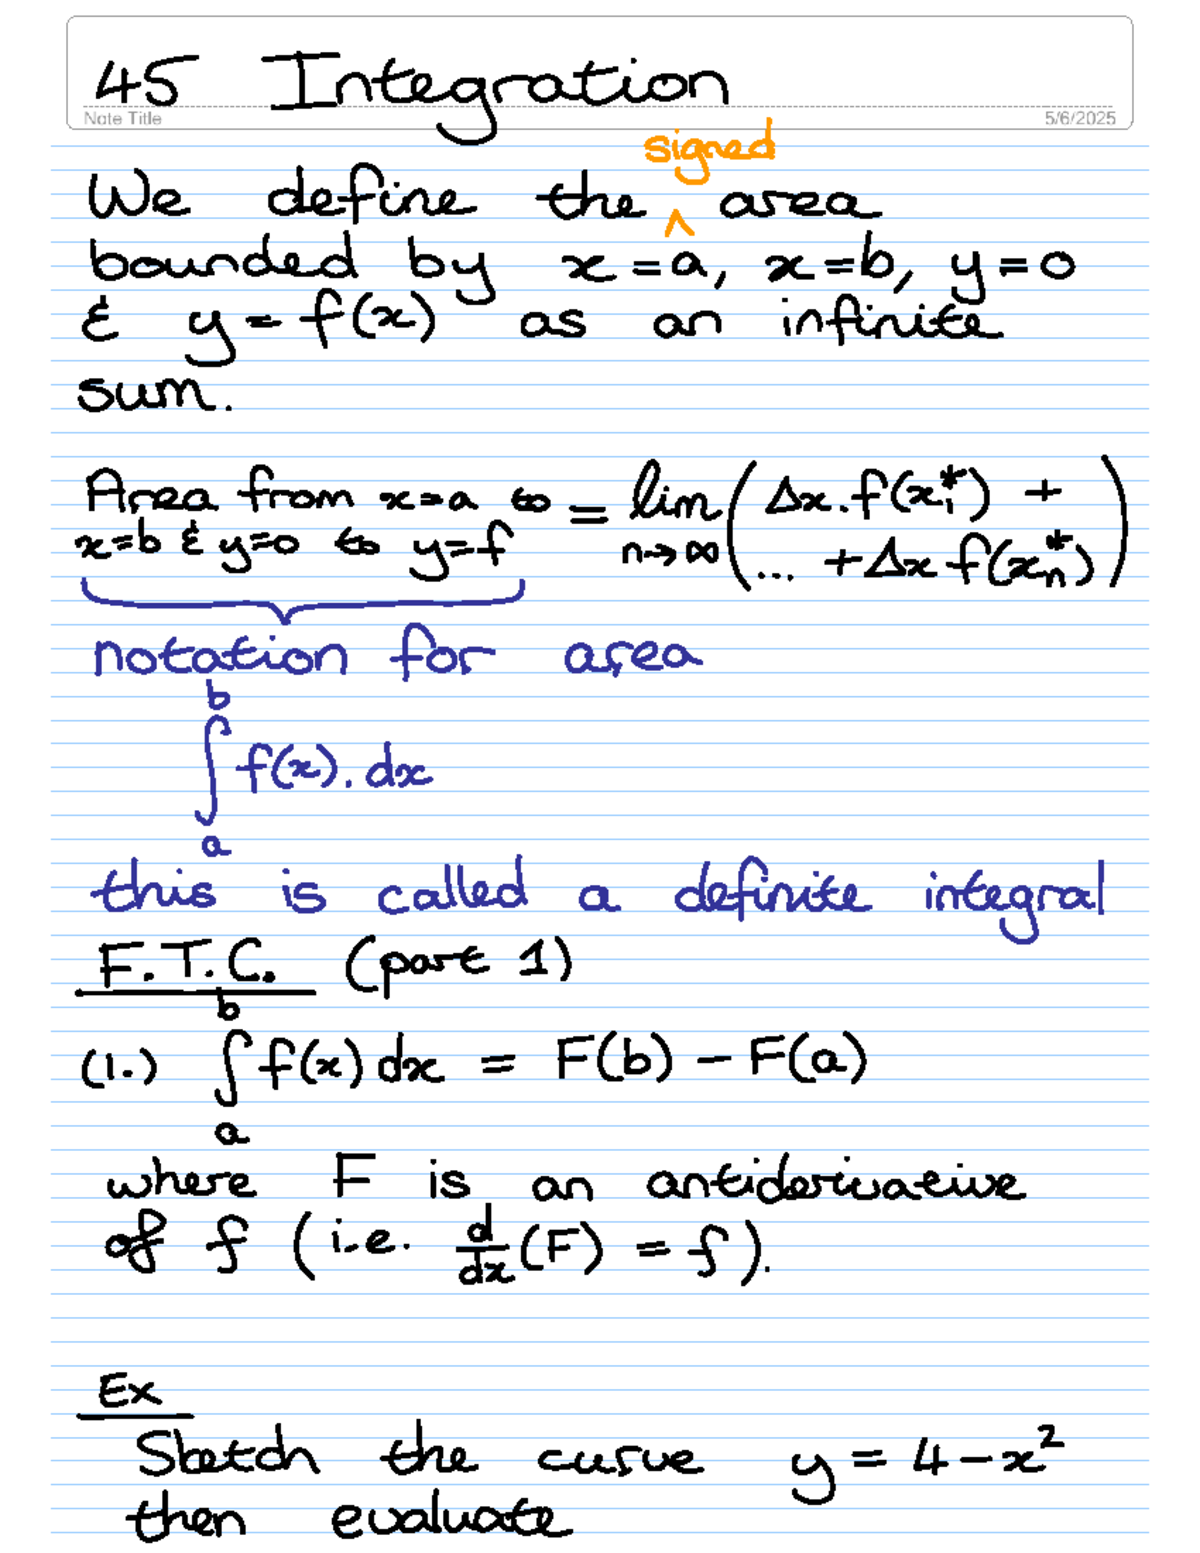 45 Integration
Note Title 5/6/2025
signed
We define the ^ area
bounded by x=a, x=b, y=0
& y=f(x) as an infinite
sum.
Area from x=a to = lim ( Δx.f(x₁*) +
x=b & y=0 to y=f n→∞ ... +Δx f(xₙ*) )
notation for area
b
∫ f(x). dx
a
this is called a definite integral
F.T.C. (part 1)
b
(1.) ∫ f(x) dx = F(b) - F(a)
a
where F is an antiderivative
of f (i.e. d/dx (F) = f).
Ex
Sketch the curve y = 4-x²
then evaluate